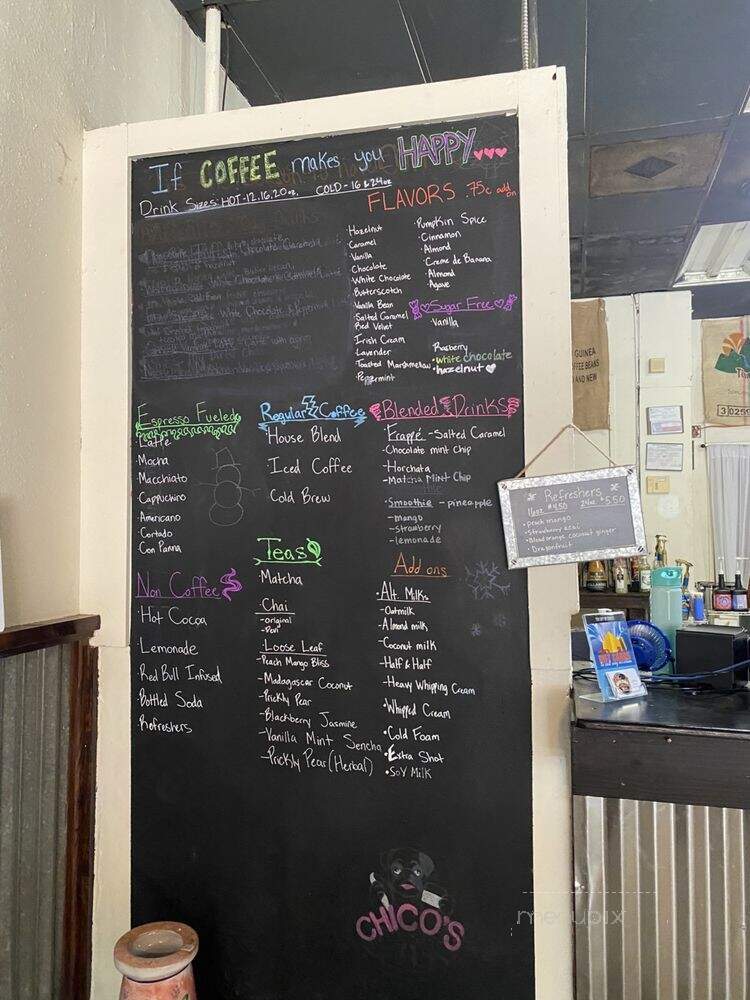 If COFFEE makes you HAPPY...
Drink Sizes: HOT-12,16,20oz, COLD-16 & 24oz
FLAVORS .75¢ add on
Hazelnut
Caramel
Vanilla
Chocolate
White Chocolate
Butterscotch
Vanilla Bean
Salted Caramel
Red Velvet
Irish Cream
Lavender
Toasted Marshmellow
Peppermint
Pumpkin Spice
Cinnamon
Almond
Creme de Banana
Almond
Agave
Sugar Free
Vanilla
Rasberry
white chocolate
hazelnut
Espresso Fueled
Latte
Mocha
Macchiato
Cappuchino
Americano
Cortado
Con Panna
Regular Coffee
House Blend
Iced Coffee
Cold Brew
Blended Drinks
Frappé - Salted Caramel
Chocolate mint chip
Horchata
Matcha Mint Chip
Smoothie - pineapple
- mango
- strawberry
- lemonade
Non Coffee
Hot Cocoa
Lemonade
Red Bull Infused
Bottled Soda
Refreshers
Teas
Matcha
Chai
- original
Loose Leaf
- Peach Mango Bliss
- Madagascar Coconut
- Prickly Pear
- Blackberry Jasmine
- Vanilla Mint Sencha
- Prickly Pear (Herbal)
Add ons
Alt. Milks
- Oatmilk
- Almond milk
- Coconut milk
- Half & Half
- Heavy Whipping Cream
Whipped Cream
Cold Foam
Extra Shot
Soy Milk
CHICO'S
Refreshers
16oz $4.50 24oz $5.50
peach mango
Strawberry acai
Blood orange coconut ginger
Dragonfruit
GUINEA
COFFEE BEANS
AND NEW
menupix